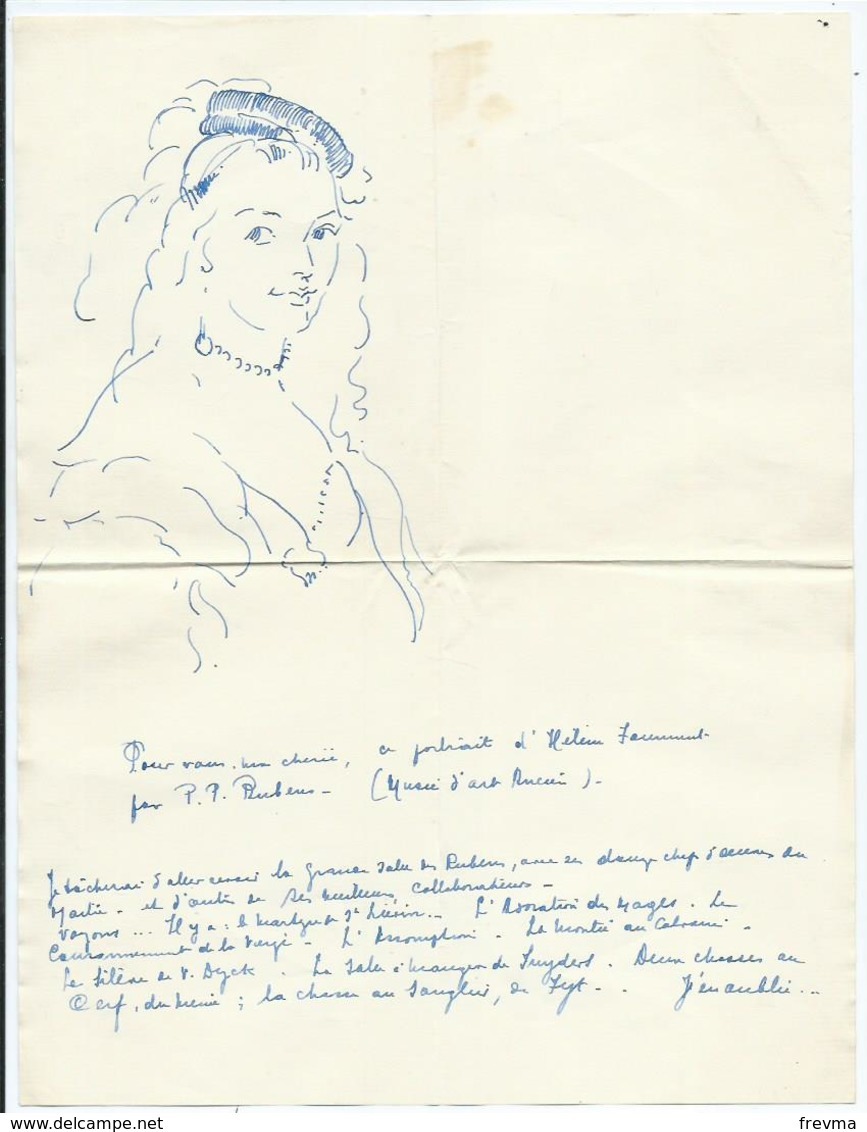 Pour vous, ma chérie, ce portrait d'Hélène Fourment
par P. P. Rubens - (Musée d'art Ancien). -
Je tâcherai d'aller revoir la grande salle des Rubens, avec ses chefs d'oeuvres du
Maître - et d'autres de ses meilleurs collaborateurs -
Voyons... Il y a : le martyre de St Liévin. - L'Adoration des Mages. Le
Couronnement de la Vierge - L'Assomption - La montée au Calvaire -
Le Silène de V. Dyck. La Salle à manger de Snyders. Deux chasses au
Cerf, du même ; la chasse au Sanglier, de Fyt - . J'en oublie...
www.delcampe.net
frevma